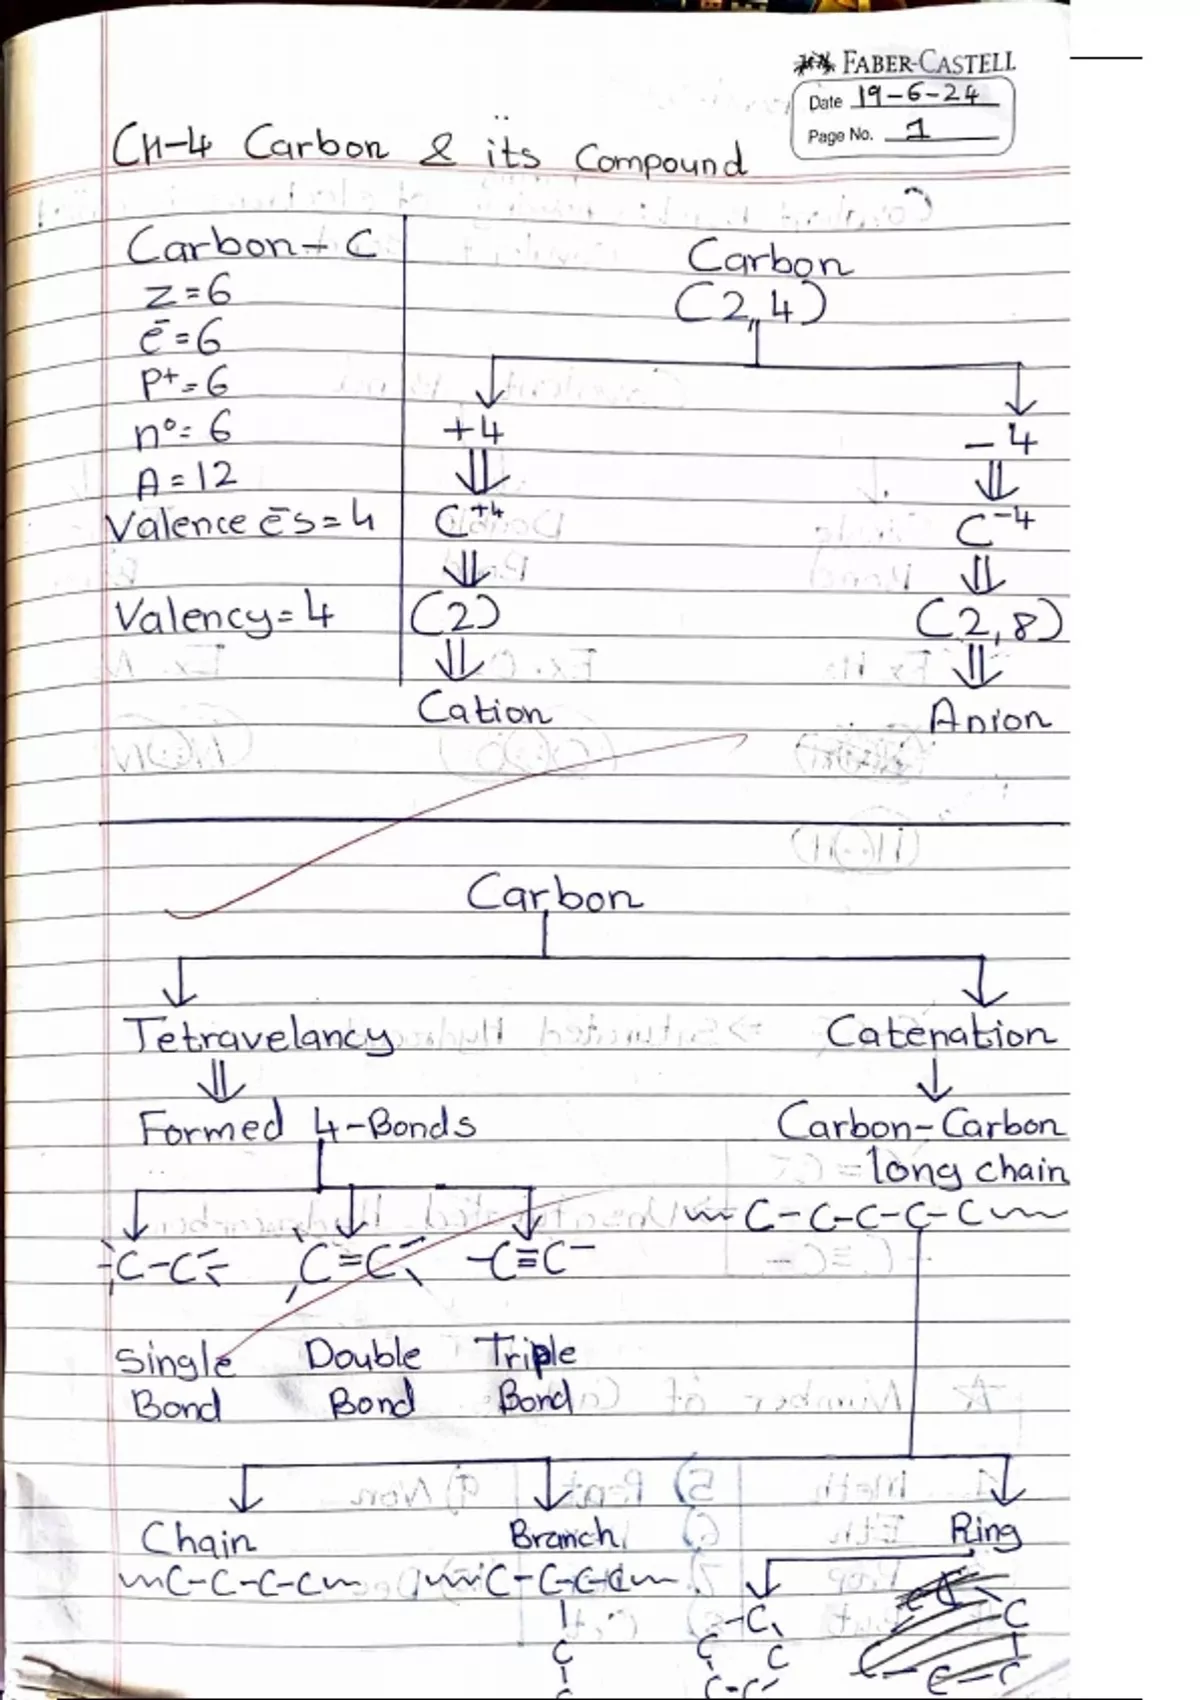 FABER-CASTELL
Date 19-6-24
Page No. 1
CH-4 Carbon & its Compound
Carbon - C
z = 6
ē = 6
P+ = 6
n° = 6
A = 12
Valence ēs = 4
Valency = 4
Carbon
(2,4)
+4
-4
C+4
C-4
(2)
(2,8)
Cation
Anion
Carbon
Tetravelancy
Catenation
Formed 4-Bonds
Carbon-Carbon
long chain
C-C-C-C-C
C-C
C=C
-C≡C-
Single Bond
Double Bond
Triple Bond
Chain
Branch
Ring
C-C-C-C
C-C-C-C
C
C
C
C
C
C-C